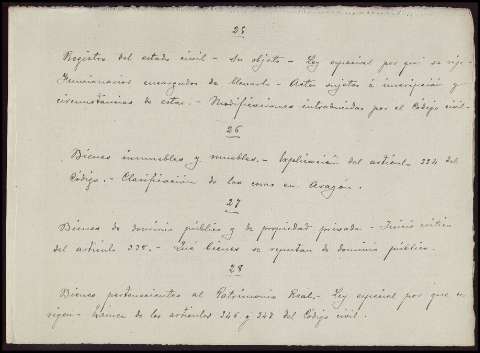 25
Registro del estado civil - Su objeto - Ley especial por que se rige -
Funcionarios encargados de llevarlo - Actos sujetos á inscripción y
circunstancias de estas. - Modificaciones introducidas por el Código civil -
26
Bienes inmuebles y muebles. - Explicación del artículo 334 del
Código. - Clasificación de las cosas en Aragón.
27
Bienes de dominio público y de propiedad privada - Juicio crítico
del artículo 338. - Qué bienes se reputan de dominio público.
28
Bienes pertenecientes al Patrimonio Real. - Ley especial por que se
rigen - de los artículos 346 y 347 del Código civil.